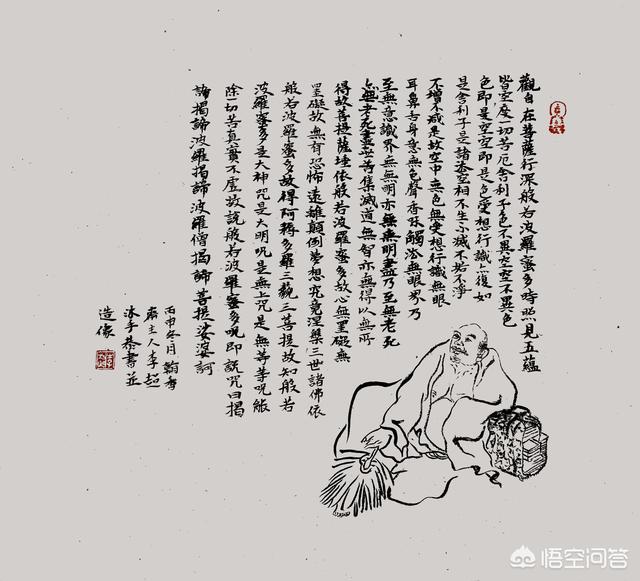 觀自在菩薩行深般若波羅蜜多時照見五蘊
皆空度一切苦厄舍利子色不異空空不異色
色即是空空即是色受想行識亦復如
是舍利子是諸法空相不生不滅不垢不淨
不增不減是故空中無色無受想行識無眼
耳鼻舌身意無色聲香味觸法無眼界乃
至無意識界無無明亦無無明盡乃至無老死
亦無老死盡無苦集滅道無智亦無得以無所
得故菩提薩埵依般若波羅蜜多故心無罣礙無
罣礙故無有恐怖遠離顛倒夢想究竟涅槃三世諸佛依
般若波羅蜜多故得阿耨多羅三藐三菩提故知般若
波羅蜜多是大神咒是大明咒是無上咒是無等等呪能
除一切苦真實不虛故說般若波羅蜜多呪即說咒曰揭
諦揭諦波羅揭諦波羅僧揭諦菩提娑婆訶
丙申冬月翰香
齋主人李超
沐手恭書並
造像
悟空问答